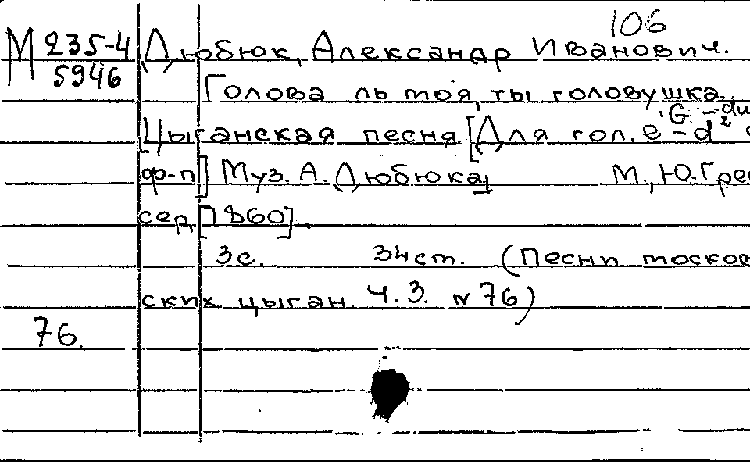 106
М 235-4 Дюбюк, Александр Иванович.
5946
Голова ль моя, ты головушка.
Цыганская песня [Для гол. e'-d² с
ф-п] Муз. А. Дюбюка] М., Ю. Грес
сер, [1860]
3с. 34 cm. (Песни москов
ских цыган. Ч. 3. №76)
76.